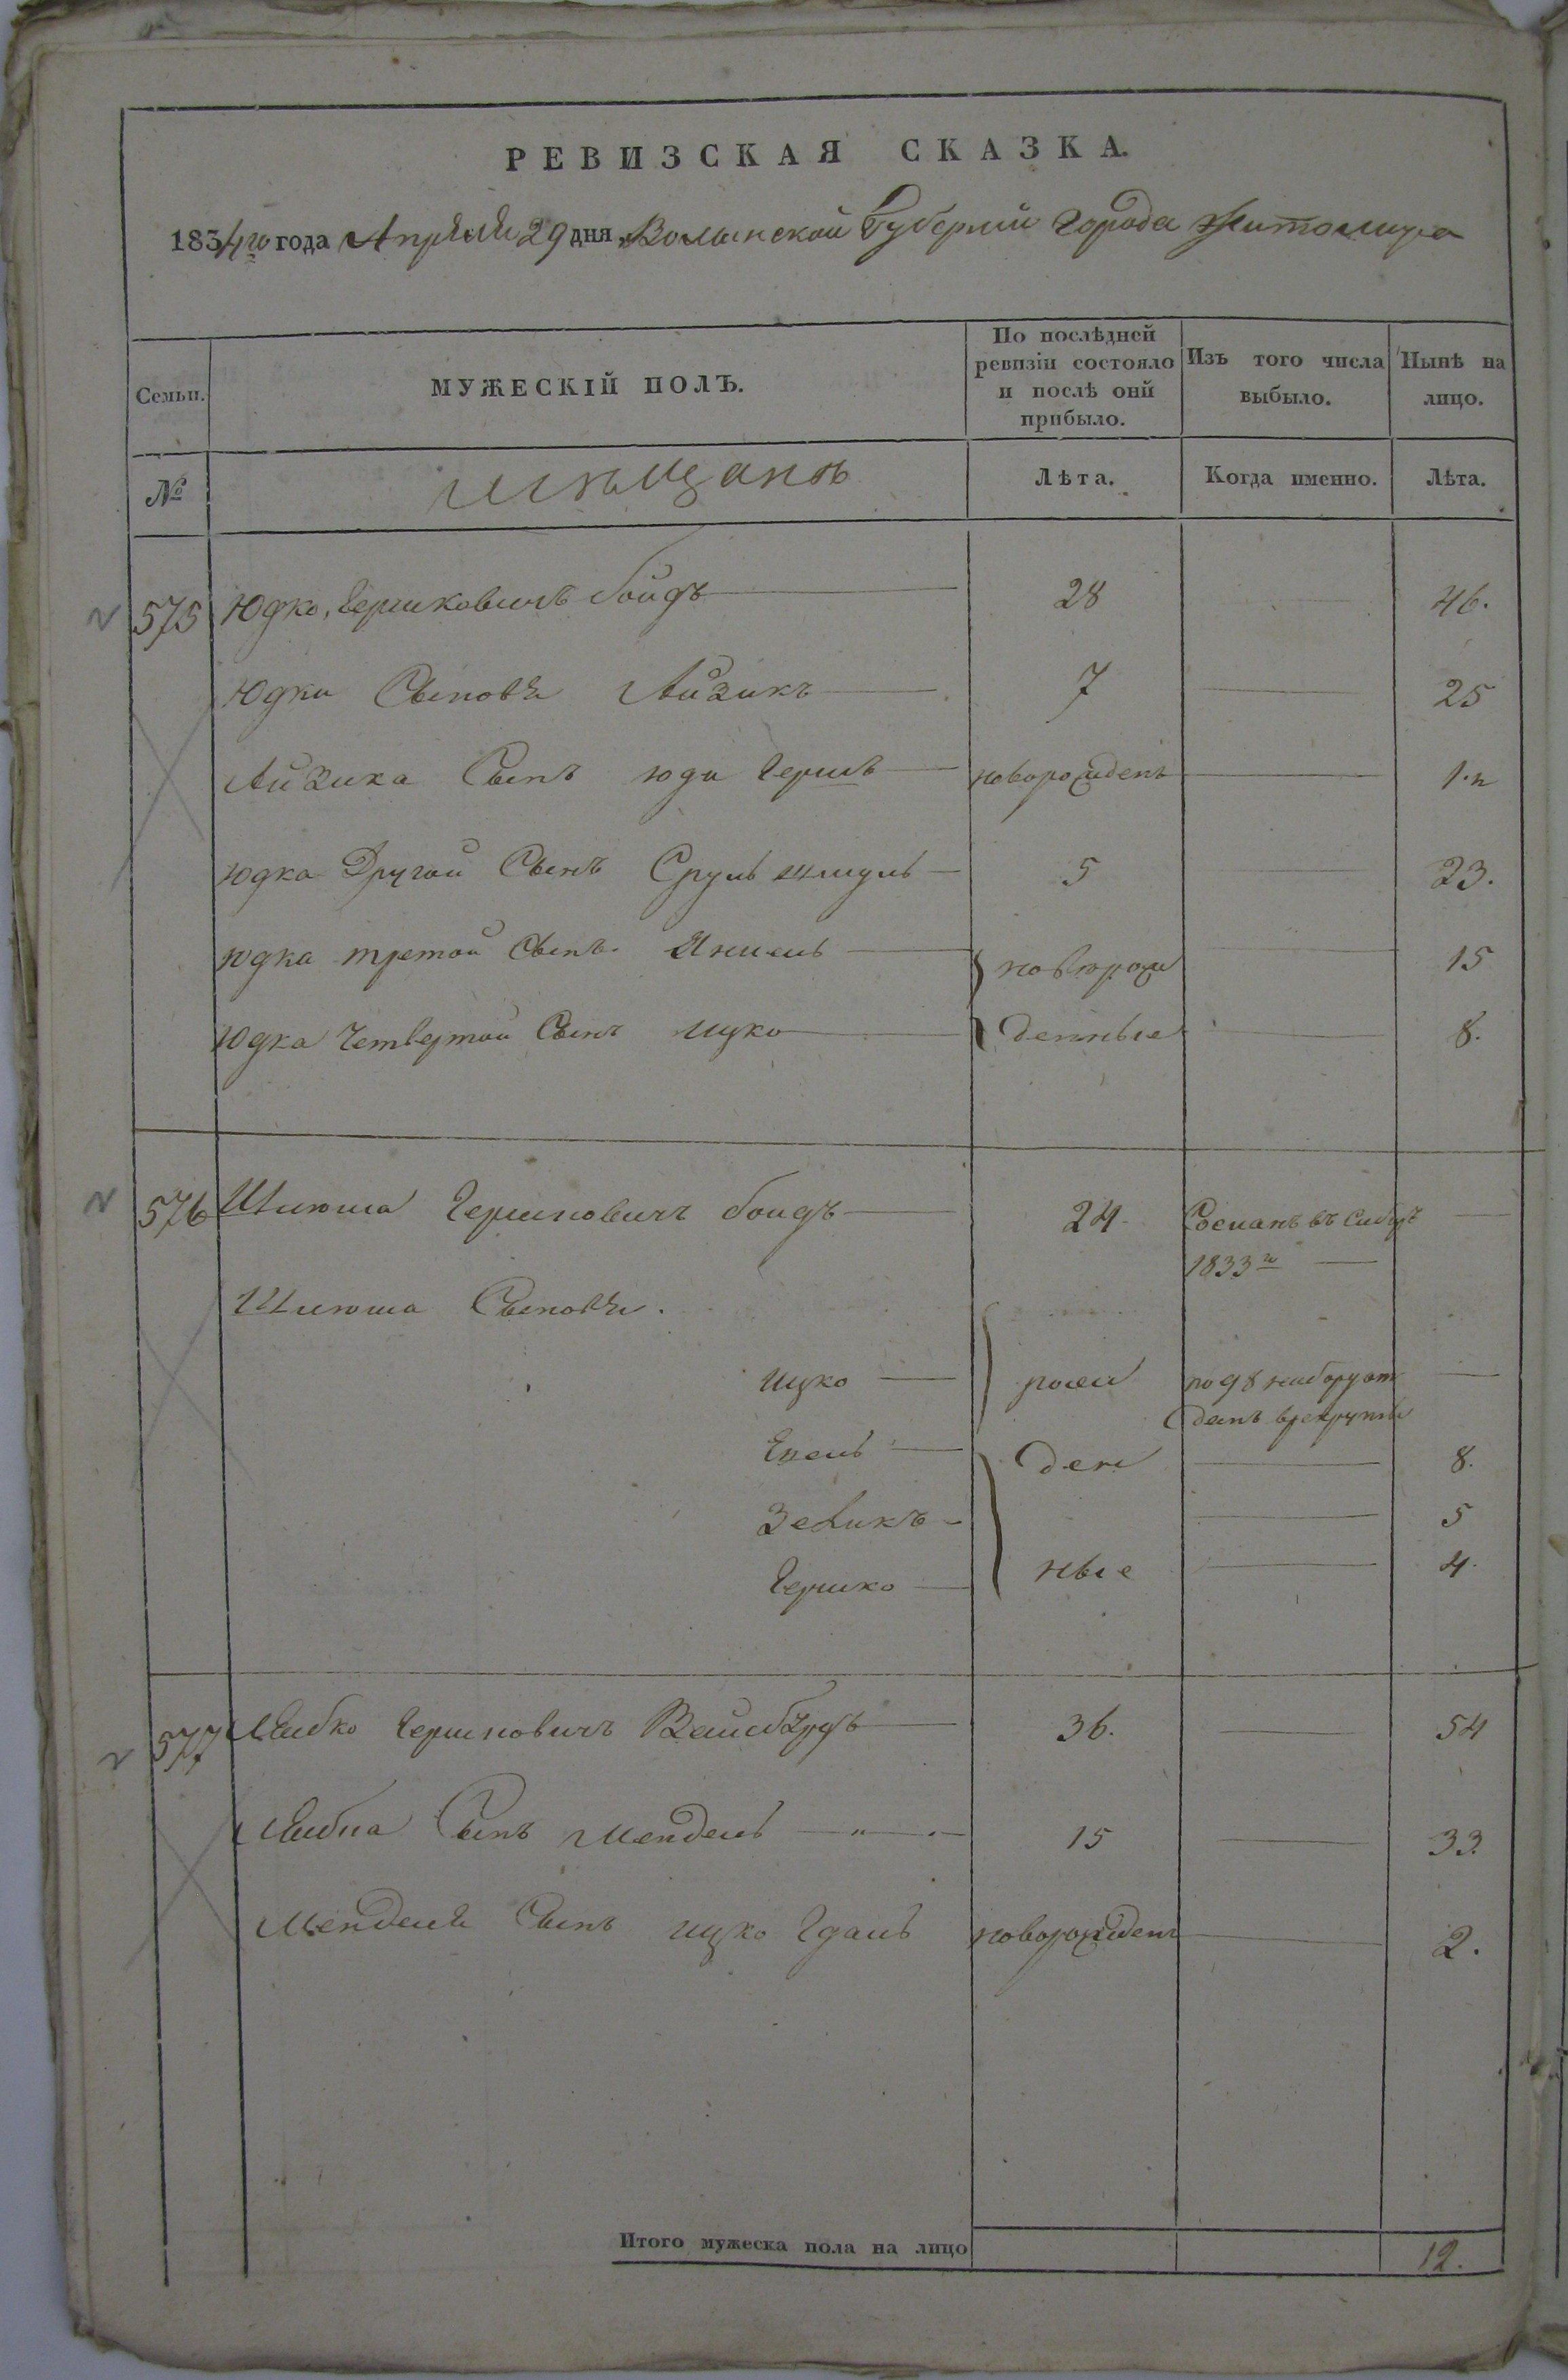 РЕВИЗСКАЯ СКАЗКА.
1834го года Апреля 29 дня Волынской Губернии Города Житомира
Семьи. МУЖЕСКІЙ ПОЛЪ. По послѣдней ревизіи состояло и послѣ оній прибыло. Изъ того числа выбыло. Нынѣ на лицо.
№ мѣщанъ Лѣта. Когда именно. Лѣта.
575 Юдко Гершковичъ бойдъ 28 46.
Юдки Сыновя Айзикъ 7 25
Айзика Сынъ юда Гершъ новорожденъ 1.
юдка Другой Сынъ Сруль шмуль 5 23.
юдка третой Сынъ 15
новорож
Юдка Четвертой Сынъ ицко денные 8.
576 Гершковичъ боидъ 24. Сосланъ въ
1833го
Сыновя.
ицко рож по набору от
данъ
ден 8.
Зеликъ 5
Гершко ные 4.
577 Лейбко Гершковичъ 36. 54
Сынъ Мендель 15 33.
Менделя Сынъ ицко новорожденъ 2.
Итого мужеска пола на лицо 12.